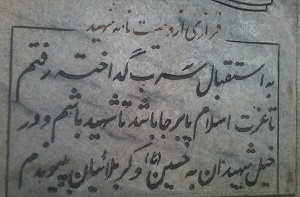 فرازی از وصیت نامه شهید
به استقبال سرب گداخته رفتم
تا عزت اسلام پابرجا باشد تا شهید باشم و در
خیل شهیدان به حسین (ع) و کربلائیان بپیوندم